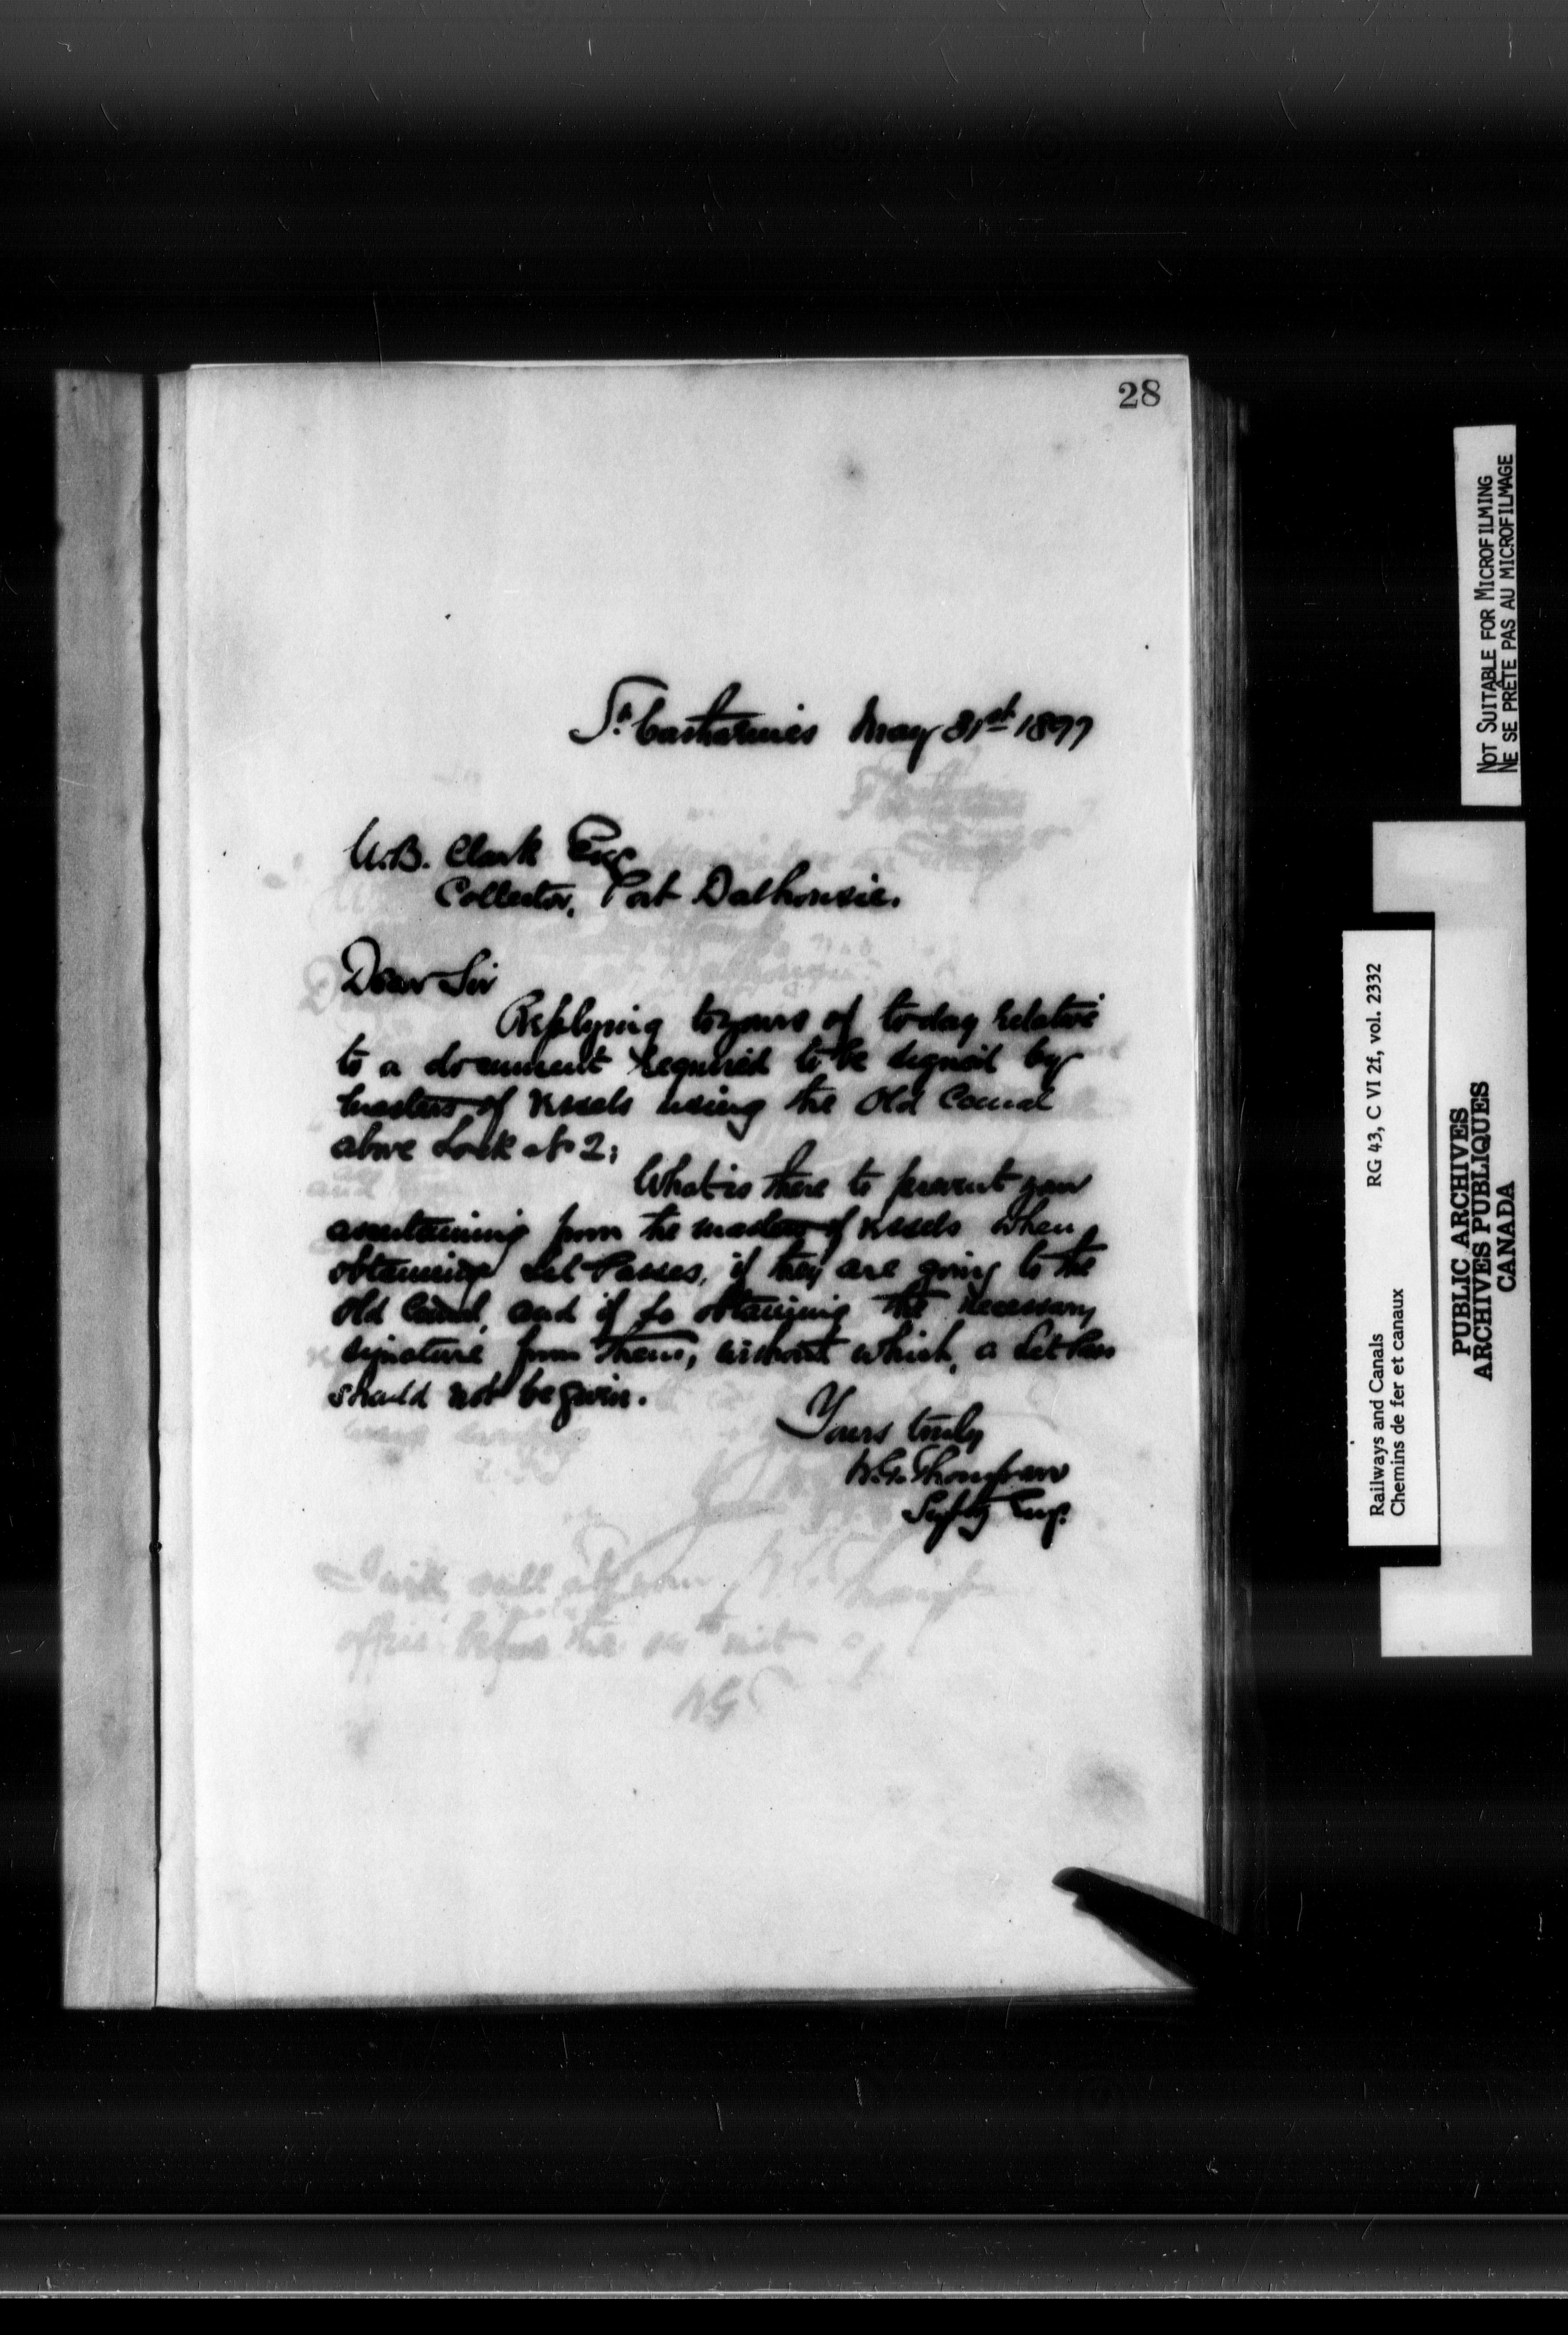 28
St. Catharines May 31st 1897
W.B. Clark Esq
Collector, Port Dalhousie.
Dear Sir
Replying to yours of today relative
to a document required to be signed by
masters of vessels using the Old Canal
above Lock No 2;
What is there to prevent you
ascertaining from the masters of vessels when
obtaining Let Passes, if they are going to the
Old Canal, and if so obtaining the necessary
signature from them, without which, a Let Pass
should not be given.
Yours truly
W.G. Thompson
Supt'g Eng.
I will call at your
office before the inst
WG
NOT SUITABLE FOR MICROFILMING
NE SE PRÊTE PAS AU MICROFILMAGE
Railways and Canals RG 43, C VI 2f, vol. 2332
Chemins de fer et canaux
PUBLIC ARCHIVES
ARCHIVES PUBLIQUES
CANADA